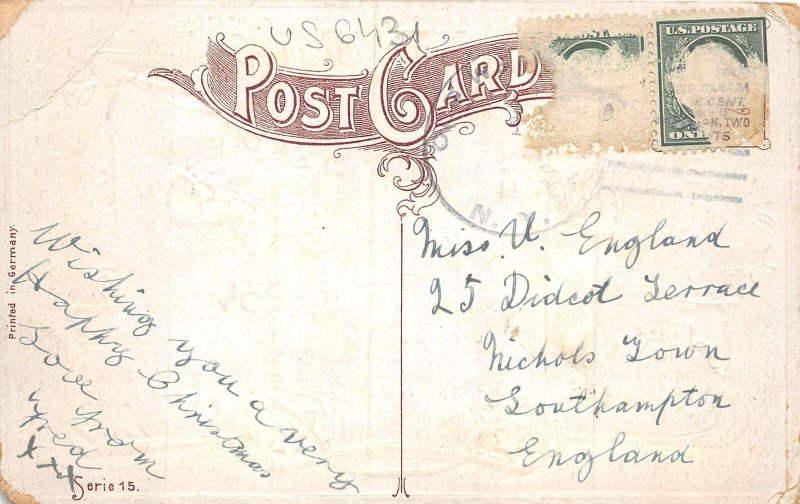 US 6431
POST CARD
U.S. POSTAGE
ONE
CENT
N, TWO
TS
N.Y.
Wishing you a very
Happy Christmas
Love from
Fred
x x x
Miss V. England
25 Didcot Terrace
Nichols Town
Southampton
England
Printed in Germany.
Serie 15.